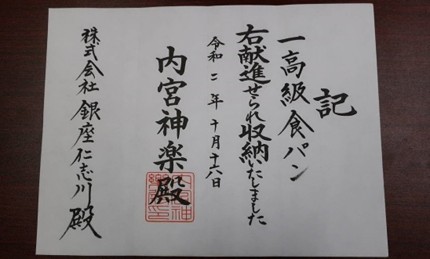 記
一 高級食パン
右献進せられ収納いたしました
令和二年十月十六日
内宮神楽殿
株式会社 銀座仁志川 殿